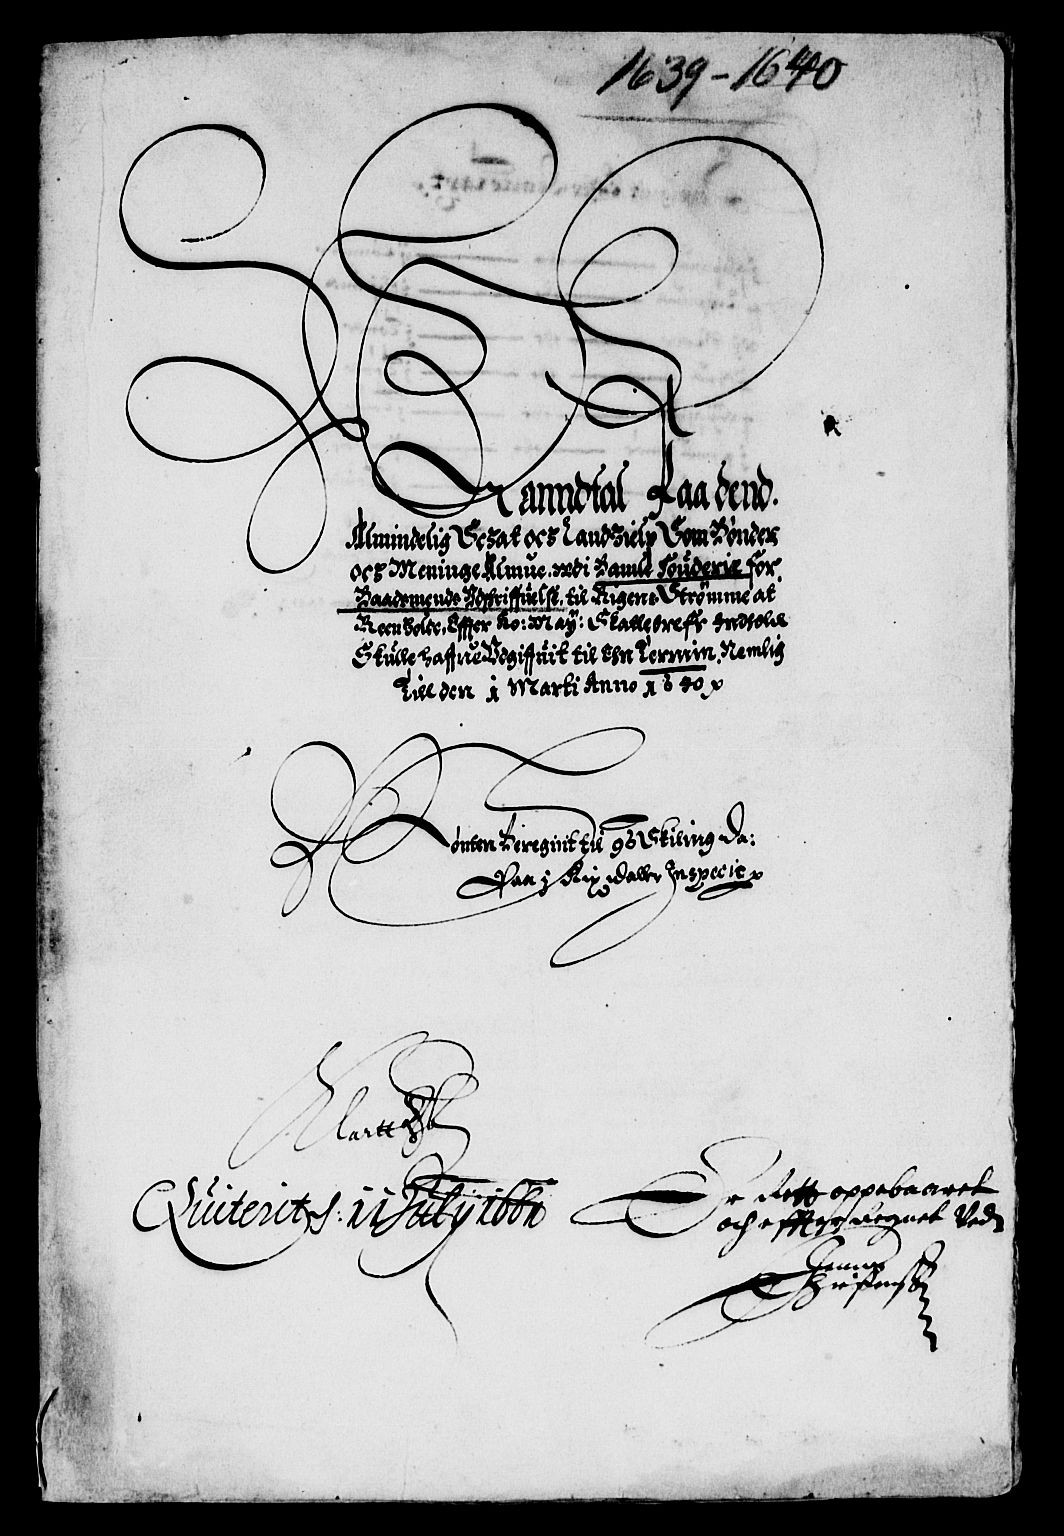 1639 - 1640
Manndtal Paa dend.
Almindelig Schat och Landhielp Som Bønder
och Meninge Almue. wdi Bamle Fougderie for
Baadsmends Vdschriffuelse, til Rigens Strømme at
Beenholde, Effter Ko: May: Skattebreffs Indhold
Skulle haffue Vdgiffuit til Thn Termin, Nemlig
Till den 1 Marti Anno 1640
Mønten Beregnit til 96 Skiling Da:
Paa j Rix daller In specie
Quiterit d: 11 July 1661
Er Rett oppebaaret
och effter Regnet Ved